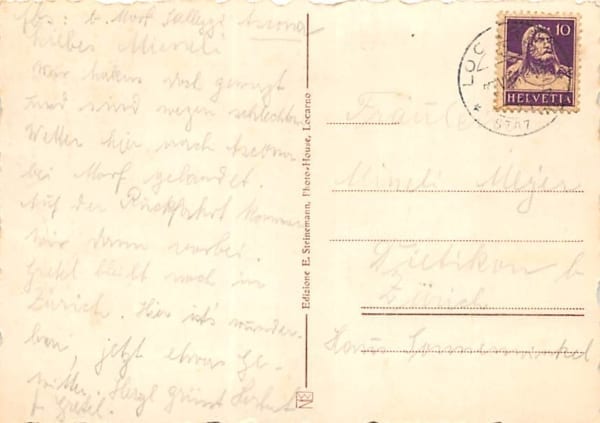 Abs: b. Morf Saleggi Ascona
Liebes Mineli
Wir haben doch gewagt
und sind wegen schlechtem
Wetter hier nach Ascona
bei Morf gelandet.
Auf der Rückfahrt kommen
wir dann vorbei.
Gretel bleibt noch in
Zürich. Hier ist's wunder-
bar, jetzt etwas Ge-
witter. Herzl grüsst Herbert
+ Gretel.
Edizione E. Steinemann, Photo-House, Locarno
10
HELVETIA
LOC
Fräulein
Mineli Meyer
Dietikon b
Zürich
Haus Sonnenwinkel